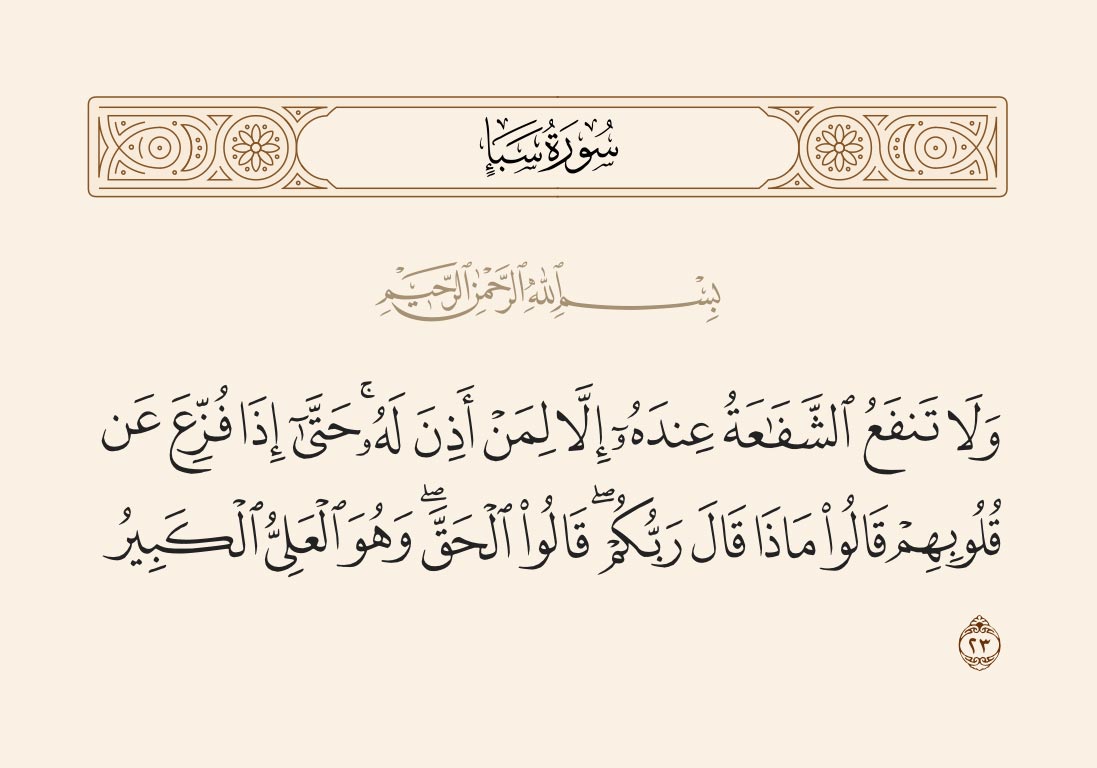 سُورَةُ سَبَإٍ
بِسْمِ ٱللَّهِ ٱلرَّحْمَٰنِ ٱلرَّحِيمِ
وَلَا تَنفَعُ ٱلشَّفَٰعَةُ عِندَهُۥٓ إِلَّا لِمَنْ أَذِنَ لَهُۥ ۚ حَتَّىٰٓ إِذَا فُزِّعَ عَن
قُلُوبِهِمْ قَالُوا۟ مَاذَا قَالَ رَبُّكُمْ ۖ قَالُوا۟ ٱلْحَقَّ ۖ وَهُوَ ٱلْعَلِىُّ ٱلْكَبِيرُ
٢٣